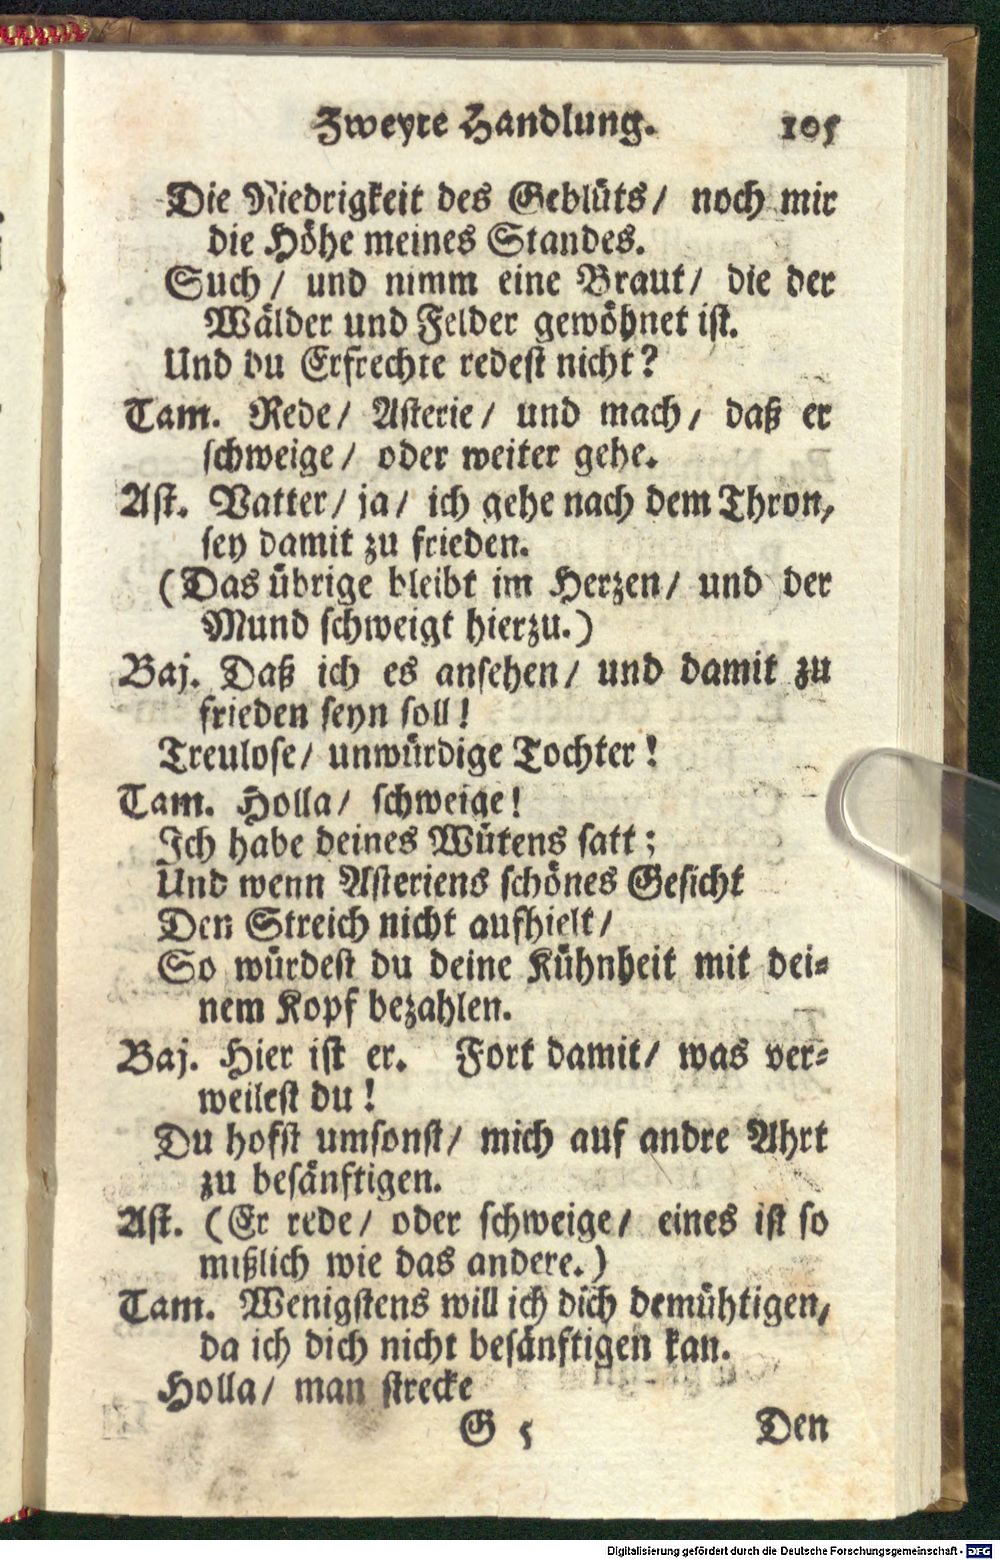 Zweyte Handlung. 105
Die Niedrigkeit des Geblüts/ noch mir
die Höhe meines Standes.
Such/ und nimm eine Braut/ die der
Wälder und Felder gewöhnet ist.
Und du Erfrechte redest nicht?
Tam. Rede/ Asterie/ und mach/ daß er
schweige/ oder weiter gehe.
Ast. Vatter/ ja/ ich gehe nach dem Thron,
sey damit zu frieden.
(Das übrige bleibt im Herzen/ und der
Mund schweigt hierzu.)
Baj. Daß ich es ansehen/ und damit zu
frieden seyn soll!
Treulose/ unwürdige Tochter!
Tam. Holla/ schweige!
Ich habe deines Wütens satt;
Und wenn Asteriens schönes Gesicht
Den Streich nicht aufhielt/
So würdest du deine Kühnheit mit dei-
nem Kopf bezahlen.
Baj. Hier ist er. Fort damit/ was ver-
weilest du!
Du hofst umsonst/ mich auf andre Ahrt
zu besänftigen.
Ast. (Er rede/ oder schweige/ eines ist so
mißlich wie das andere.)
Tam. Wenigstens will ich dich demühtigen,
da ich dich nicht besänftigen kan.
Holla/ man strecke
G 5 Den
Digitalisierung gefördert durch die Deutsche Forschungsgemeinschaft - DFG